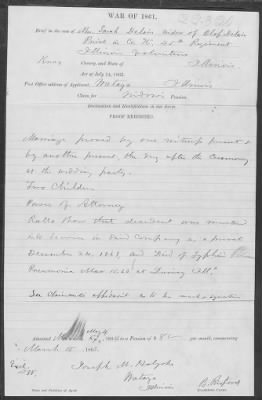 WAR OF 1861.
Brief in the case of Mrs Sarah widow of Olof
Priv. in Co. 45th Regiment
Illinois Volunteers
Knox County, and State of Illinois
Act of July 14, 1862.
Post Office address of Applicant, Wataga Illinois
Claim for Widow's Pension.
Declaration and Identification in due form.
PROOF EXHIBITED:
Marriage proved by one witness present &
by another present, the day after the ceremony
at the wedding party.
Two Children
Power of Attorney
Rolls show that decedent was mustered
into service in said Company as a private
December 24, 1861, and died of Typhoid
Pneumonia Mar at Quincy Ills.
See Claimants affidavit as to her mark & signature
Admitted 186 to a Pension of $8 per month, commencing
March 186
Joseph M. Holyoke
Wataga
Illinois
Name and Residence of Agent.